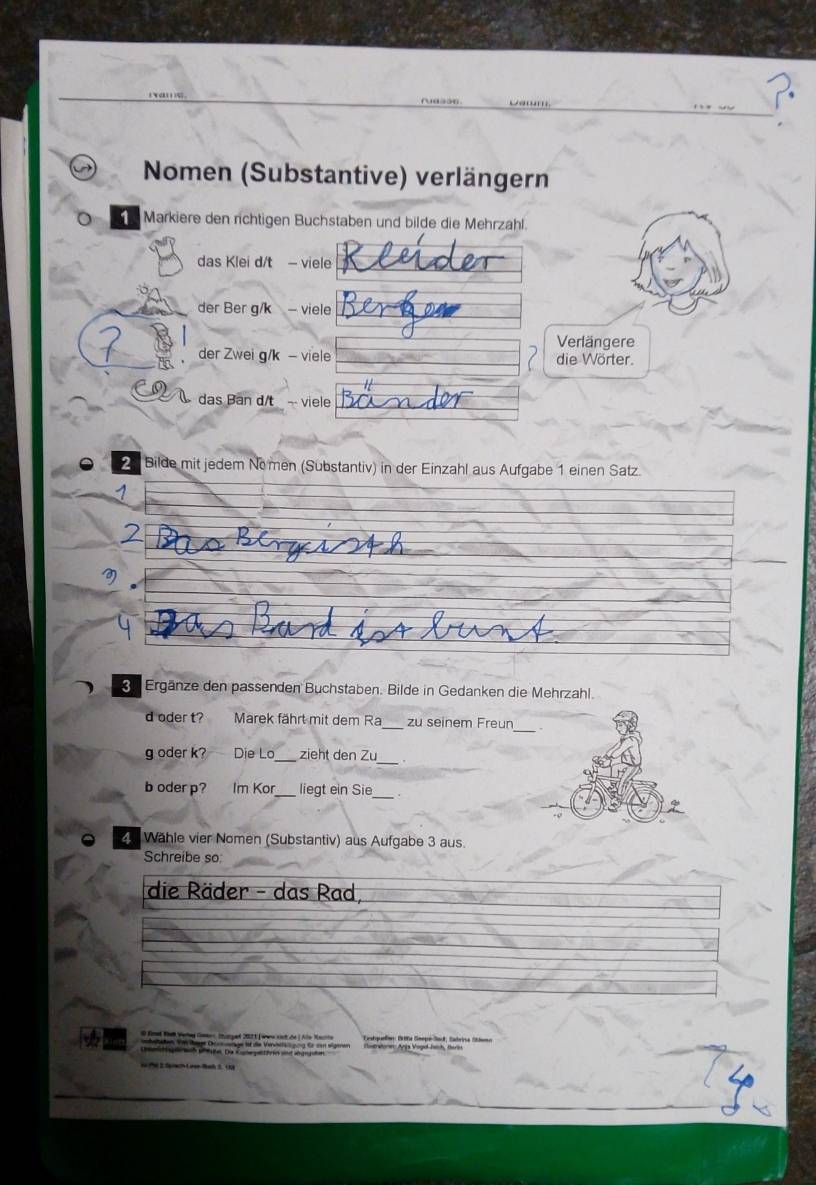 Name: Klasse: Datum:
?
Nomen (Substantive) verlängern
1 Markiere den richtigen Buchstaben und bilde die Mehrzahl.
das Klei d/t – viele Kleider
der Ber g/k – viele Berge
? ! der Zwei g/k – viele ?
Verlängere
die Wörter.
das Ban d/t – viele Bänder
2 Bilde mit jedem Nomen (Substantiv) in der Einzahl aus Aufgabe 1 einen Satz.
1
2 Das Berg isth
3.
4 Das Band ist bunt.
3 Ergänze den passenden Buchstaben. Bilde in Gedanken die Mehrzahl.
d oder t? Marek fährt mit dem Ra__ zu seinem Freun__.
g oder k? Die Lo__ zieht den Zu__.
b oder p? Im Kor__ liegt ein Sie__.
4 Wähle vier Nomen (Substantiv) aus Aufgabe 3 aus.
Schreibe so:
die Räder – das Rad,
Klett
© Ernst Klett Verlag GmbH, Stuttgart 2021 | www.klett.de | Alle Rechte